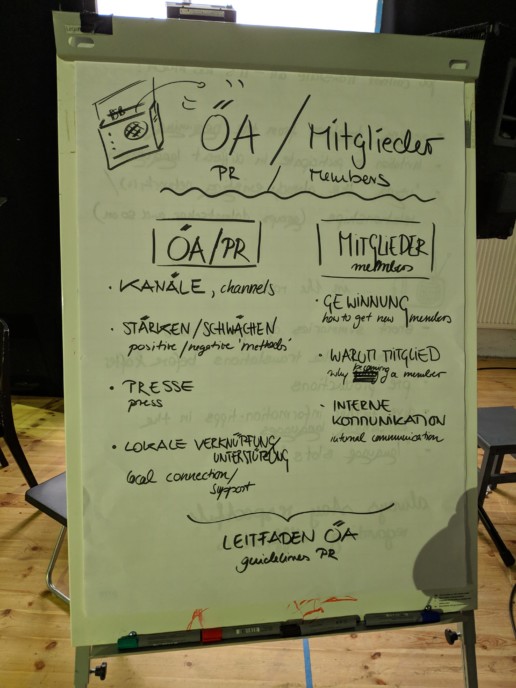 ÖA / Mitglieder
PR / Members
ÖA/PR
· KANÄLE, channels
· STÄRKEN/SCHWÄCHEN
positive/negative 'methods'
· PRESSE
press
· LOKALE VERKNÜPFUNG/
UNTERSTÜTZUNG
local connection/
support
MITGLIEDER
members
· GEWINNUNG
how to get new members
· WARUM MITGLIED
why becoming a member
· INTERNE
KOMMUNIKATION
internal communication
LEITFADEN ÖA
guidelines PR